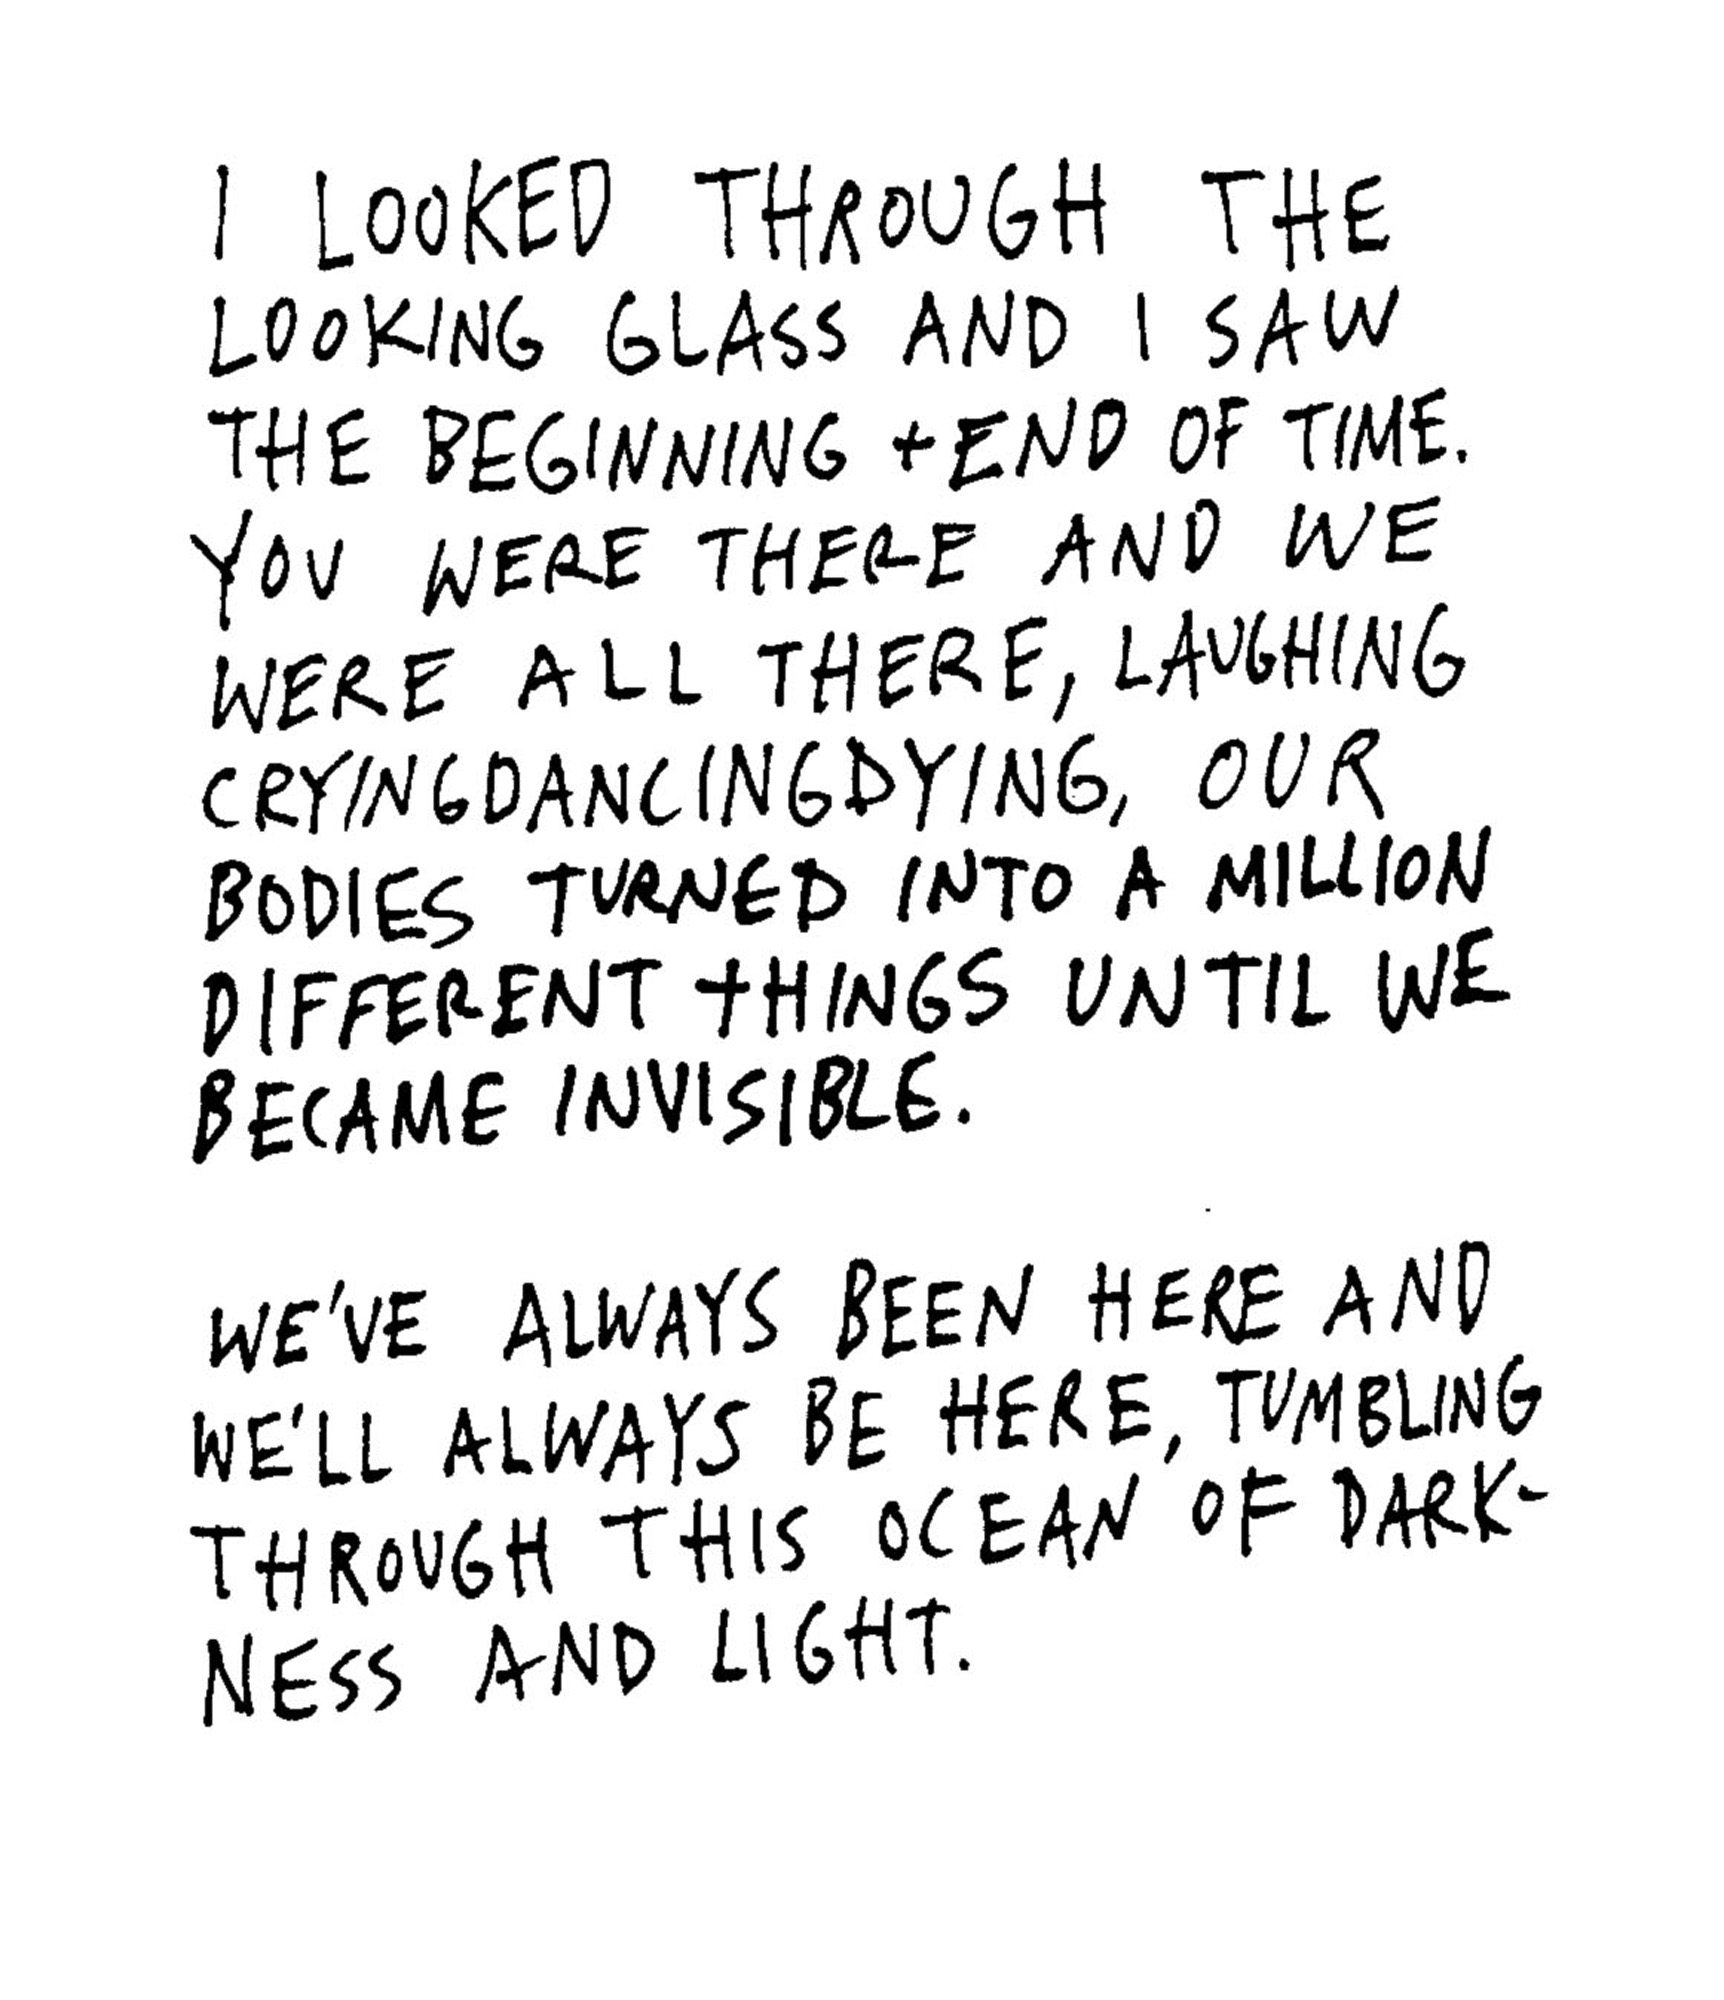 I LOOKED THROUGH THE
LOOKING GLASS AND I SAW
THE BEGINNING + END OF TIME.
YOU WERE THERE AND WE
WERE ALL THERE, LAUGHING
CRYINGDANCINGDYING, OUR
BODIES TURNED INTO A MILLION
DIFFERENT THINGS UNTIL WE
BECAME INVISIBLE.
WE'VE ALWAYS BEEN HERE AND
WE'LL ALWAYS BE HERE, TUMBLING
THROUGH THIS OCEAN OF DARK-
NESS AND LIGHT.